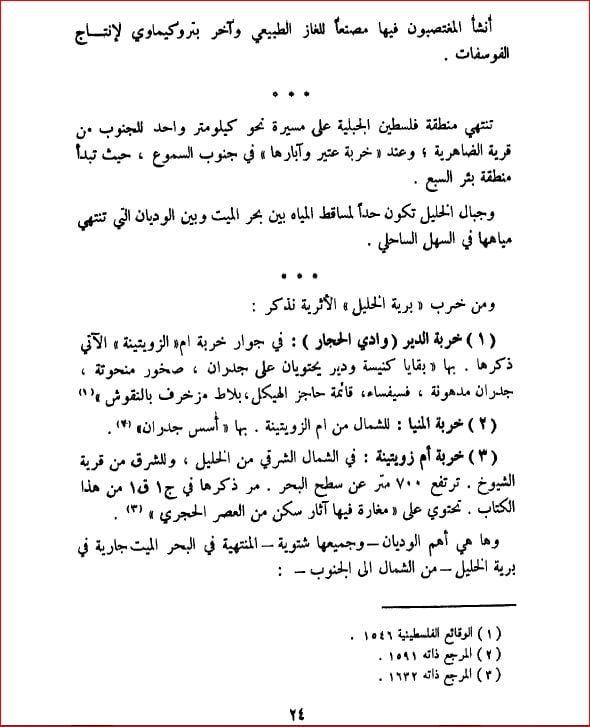 أنشأ المغتصبون فيها مصنعاً للغاز الطبيعي وآخر بتروكيماوي لإنتـــاج
الفوسفات .
* * *
تنتهي منطقة فلسطين الجبلية على مسيرة نحو كيلومتر واحد للجنوب من
قرية الضاهرية ؛ وعند « خربة عتير وآبارها » في جنوب السموع ، حيث تبدأ
منطقة بئر السبع .
وجبال الخليل تكون حداً لمساقط المياه بين بحر الميت وبين الوديان التي تنتهي
مياهها في السهل الساحلي .
* * *
ومن خرب « برية الخليل » الأثرية نذكر :
( ١ ) خربة الدير ( وادي الحجار ) : في جوار خربة ام« الزويتينة » الآتي
ذكرها . بها « بقايا كنيسة ودير يحتويان على جدران ، صخور منحوتة ،
جدران مدهونة ، فسيفساء، قائمة حاجز الهيكل،بلاط مزخرف بالنقوش »(١)
( ٢ ) خربة المنيا : للشمال من ام الزويتينة . بها « أسس جدران» (٢) .
( ٣ ) خربة أم زويتينة : في الشمال الشرقي من الخليل ، وللشرق من قرية
الشيوخ . ترتفع ٧٠٠ متر عن سطح البحر . مر ذكرها في ج١ ق١ من هذا
الكتاب . تحتوي على « مغارة فيها آثار سكن من العصر الحجري » (٣) .
وها هي أهم الوديان ــ وجميعها شتوية ــ المنتهية في البحر الميت جارية في
برية الخليل ــ من الشمال الى الجنوب ــ :
( ١ ) الوقائع الفلسطينية ١٥٤٦ .
( ٢ ) المرجع ذاته ١٥٩١ .
( ٣ ) المرجع ذاته ١٦٣٢ .
٢٤